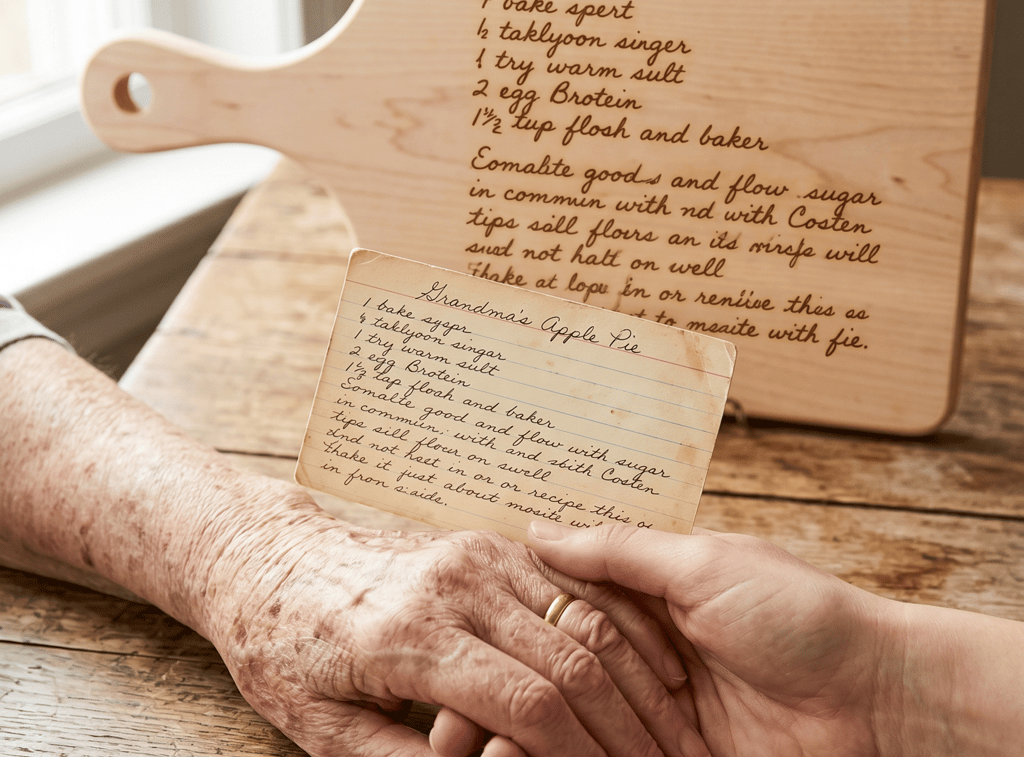 1 bake spert
½ taklyoon singer
1 try warm sult
2 egg Brotein
1½ tup flosh and baker
Eomalite goods and flow sugar
in commun with nd with Costen
tips sall flours an its will
sud not halt on well
Thake at in or this as
to msaite with fie.
Grandma's Apple Pie
1 bake syspr
taklyoon singar
1 try warm sult
2 egg Brotein
tap flosh and baker
Somalte good and flow with sugar
in commun: with and sbith Costen
tips sill flour on swell
2nd not heet in or or recipe this or
thake it just about mosite
in fron s:aids.